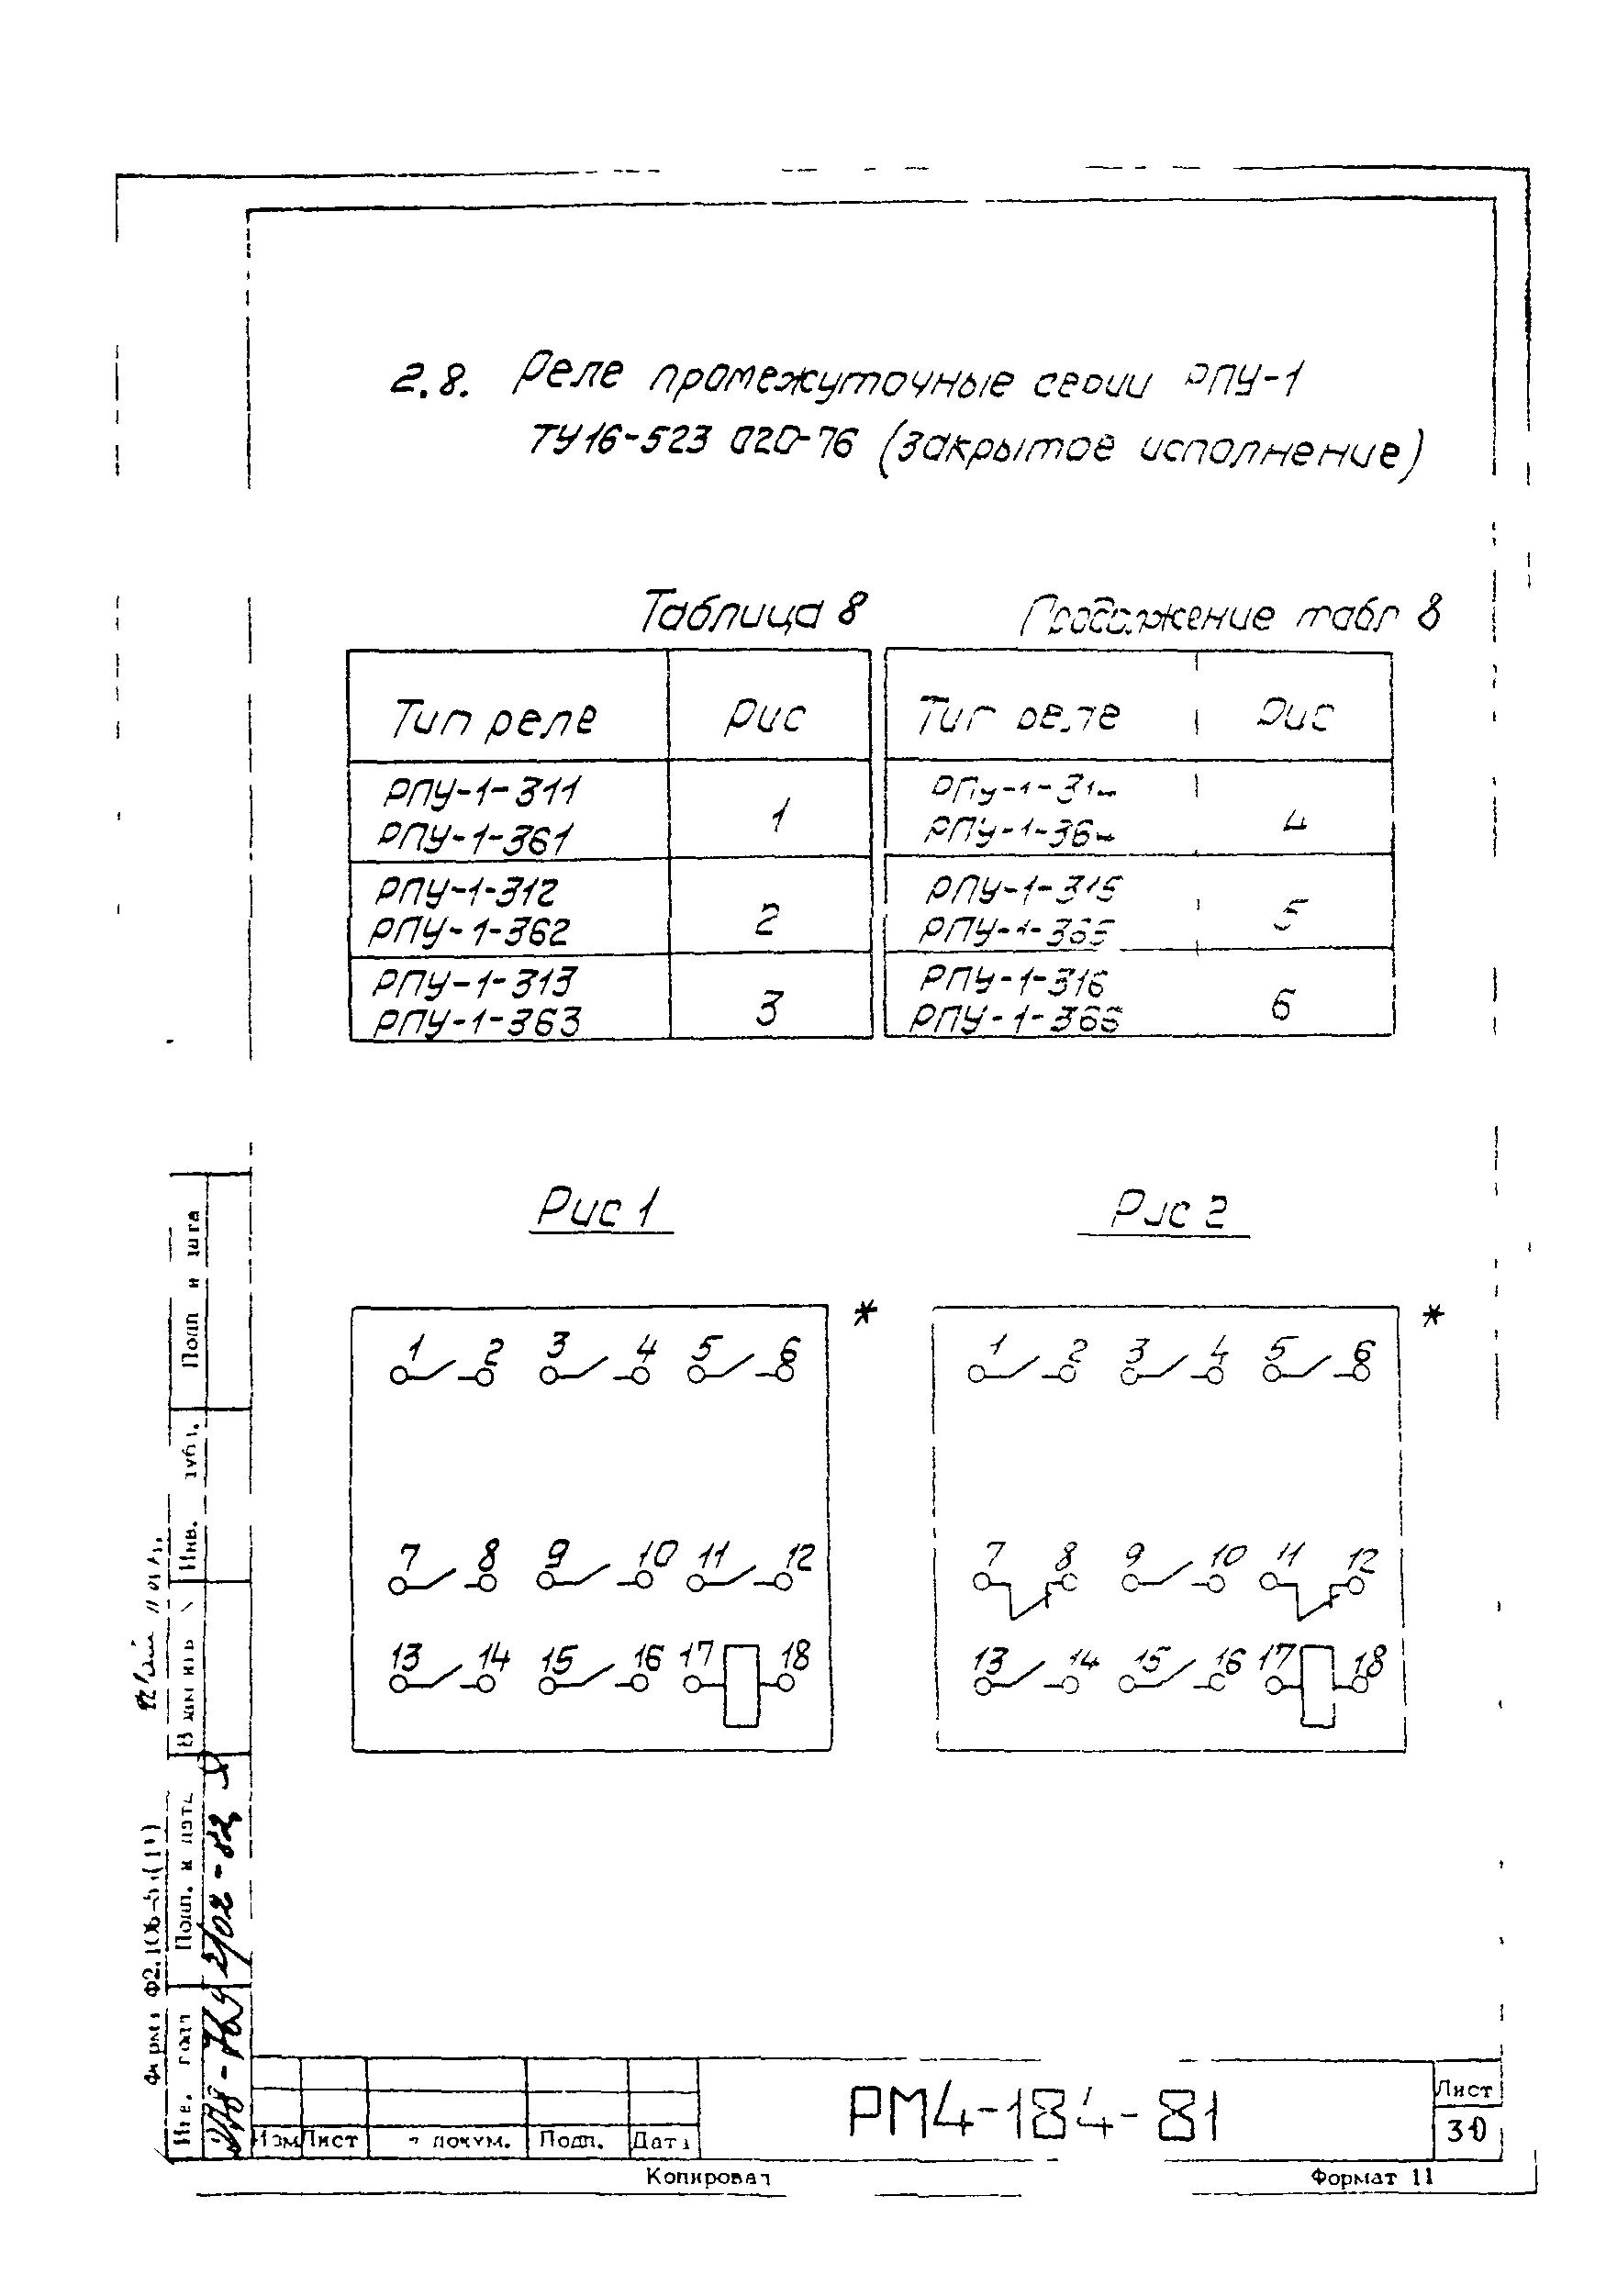 2.8. Реле промежуточные серии РПУ-1
ТУ16-523 020-76 (закрытое исполнение)
Таблица 8
Тип реле Рис
РПУ-1-311
РПУ-1-361
1
РПУ-1-312
РПУ-1-362
2
РПУ-1-313
РПУ-1-363
3
Продолжение табл 8
Тип реле Рис
РПУ-1-314
РПУ-1-364
4
РПУ-1-315
РПУ-1-365
5
РПУ-1-316
РПУ-1-366
6
Рис 1
*
1 2 3 4 5 6
7 8 9 10 11 12
13 14 15 16 17 18
Рис 2
*
1 2 3 4 5 6
7 8 9 10 11 12
13 14 15 16 17 18
Подп и дата
Инв. дубл.
Подп. и дата
Инв. подл
Изм Лист докум. Подп. Дата
РМ4-184-81
Лист
30
Копировал
Формат 11